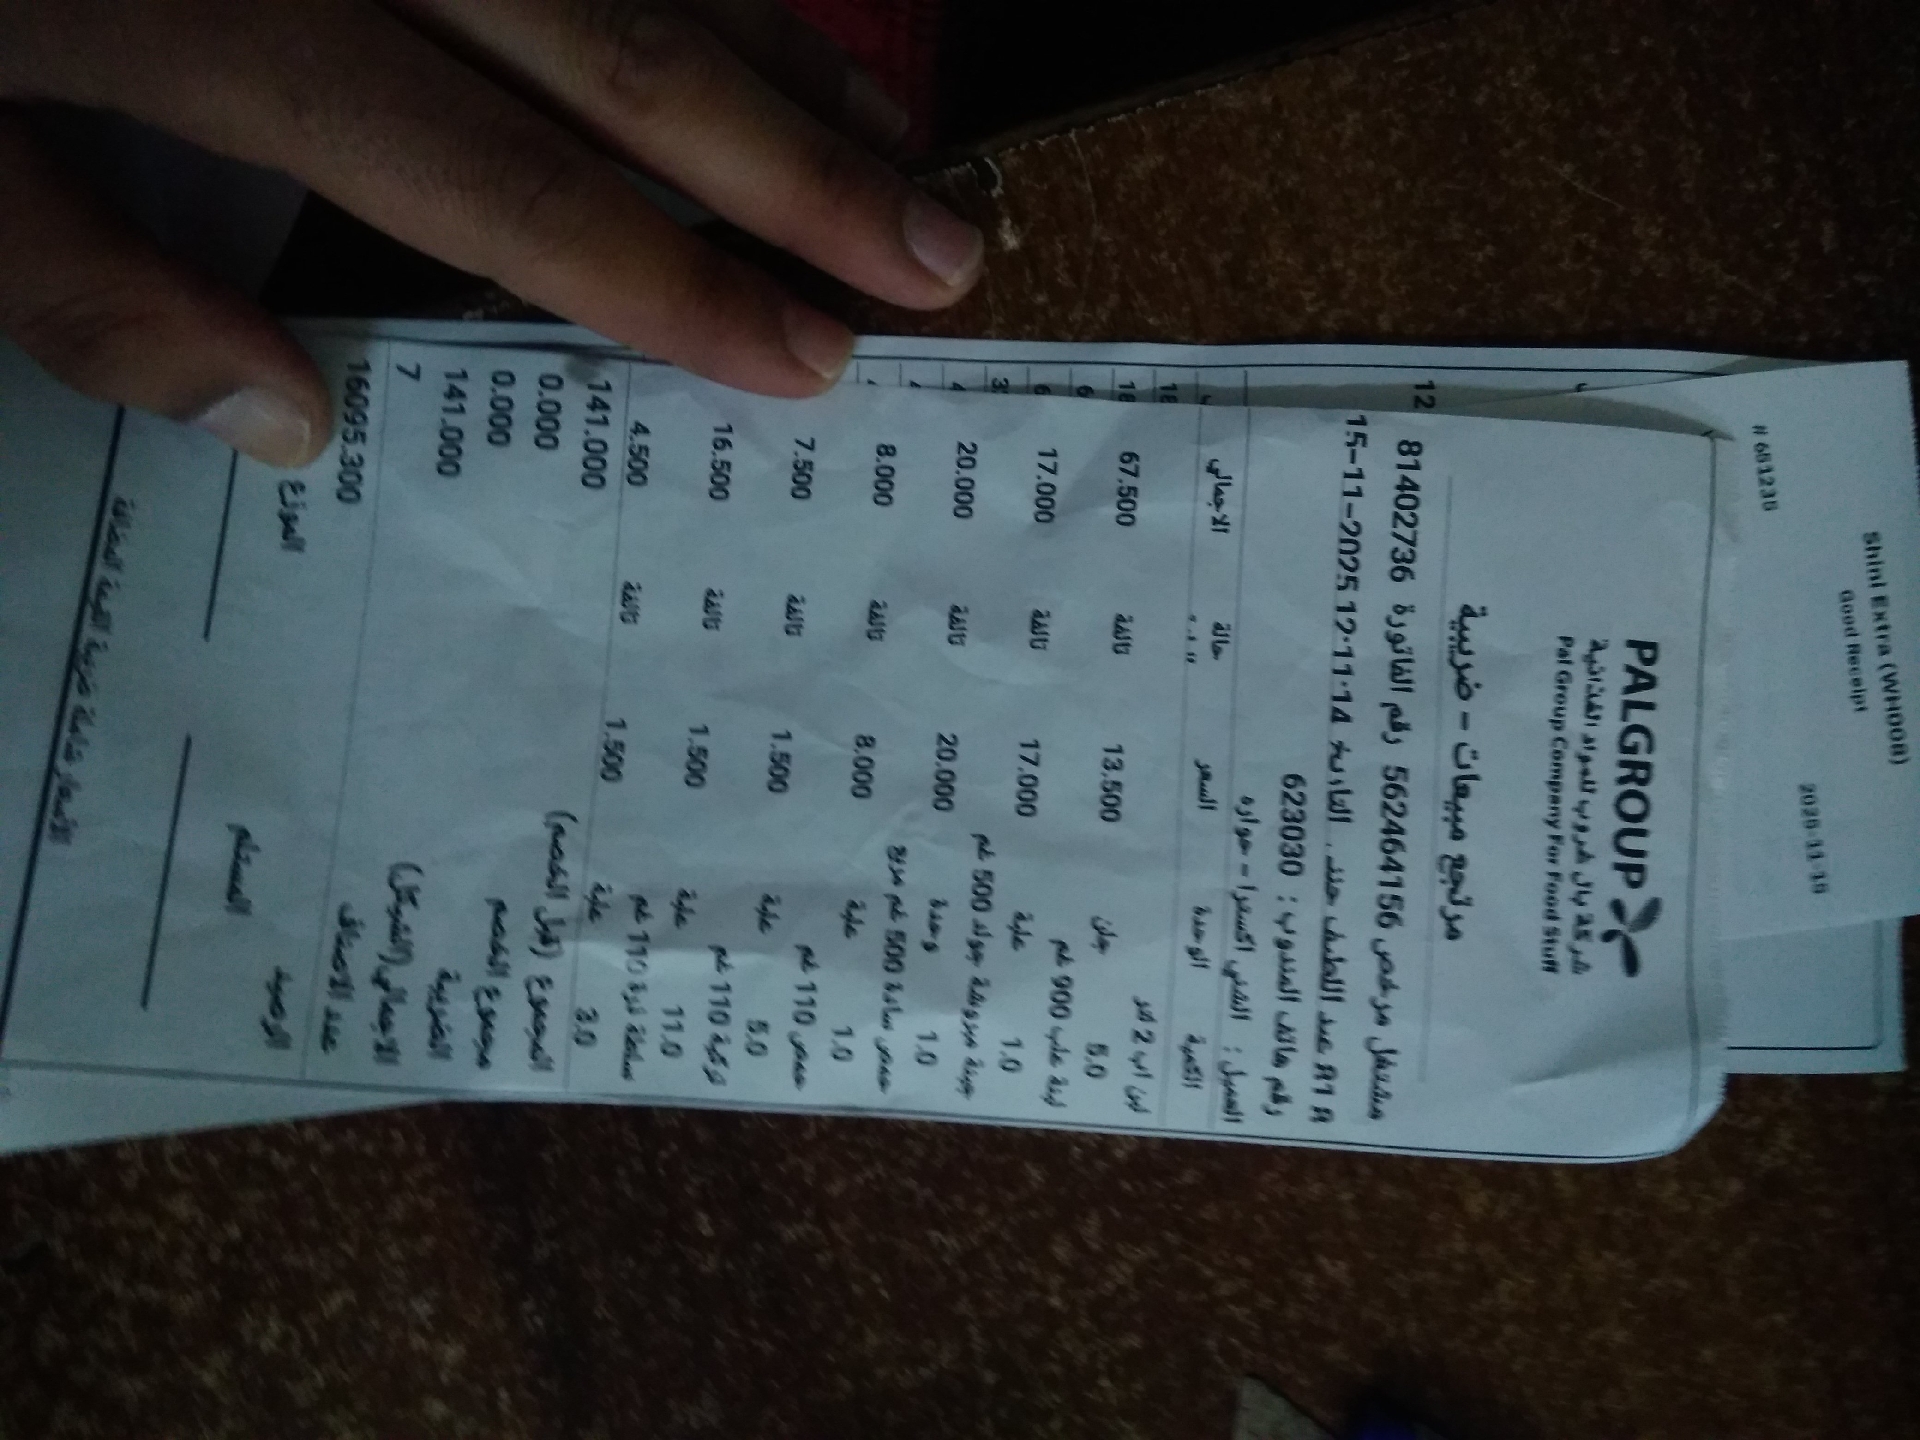 Shini Extra (WH008)
Good Receipt
PALGROUP
شركة بال غروب للمواد الغذائية
Pal Group Company For Food Stuff
مرتجع مبيعات - ضريبية
مشتغل مرخص 562464156 رقم الفاتورة 81402736
عبد اللطيف التاريخ 15-11-2025 12:11:14
رقم هاتف المندوب : 623030
العميل : الشني اكسترا - حواره
الكمية الوحدة السعر حالة الاجمالي
لبن اب 2 لتر
5.0 جلن 13.500 تالفة 67.500
لبنة علب 900 غم
1.0 علبة 17.000 تالفة 17.000
جبنة مبروشة جولد 500 غم
1.0 وحدة 20.000 تالفة 20.000
حمص سادة 500 غم مربع
1.0 علبة 8.000 تالفة 8.000
حمص 110 غم
5.0 علبة 1.500 تالفة 7.500
تركية 110 غم
11.0 علبة 1.500 تالفة 16.500
سلطة ذرة 110 غم
3.0 علبة 1.500 تالفة 4.500
المجموع (قبل الخصم) 141.000
مجموع الخصم 0.000
الضريبة 0.000
الاجمالي (الشيكل) 141.000
عدد الاصناف 7
الرصيد 16095.300
المستلم الموزع
الأسعار شاملة ضريبة القيمة المضافة